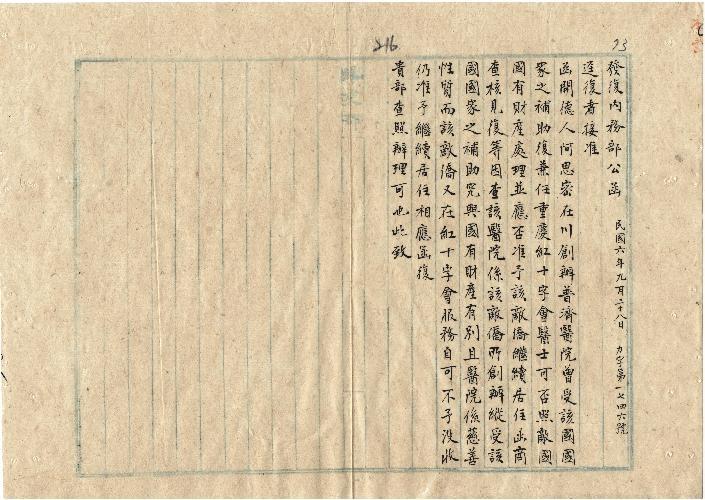 93
216
發復內務部公函　民國六年九月二十八日　力字第一七四六號
逕復者接准
函開德人阿思密在川創辦普濟醫院曾受該國國
家之補助復兼任重慶紅十字會醫士可否照敵國
國有財產處理並應否准予該敵僑繼續居住函商
查核見復等因查該醫院係該敵僑所創辦縱受該
國國家之補助究與國有財產有別且醫院係慈善
性質而該敵僑又在紅十字會服務自可不予沒收
仍准予繼續居住相應函復
貴部查照辦理可也此致